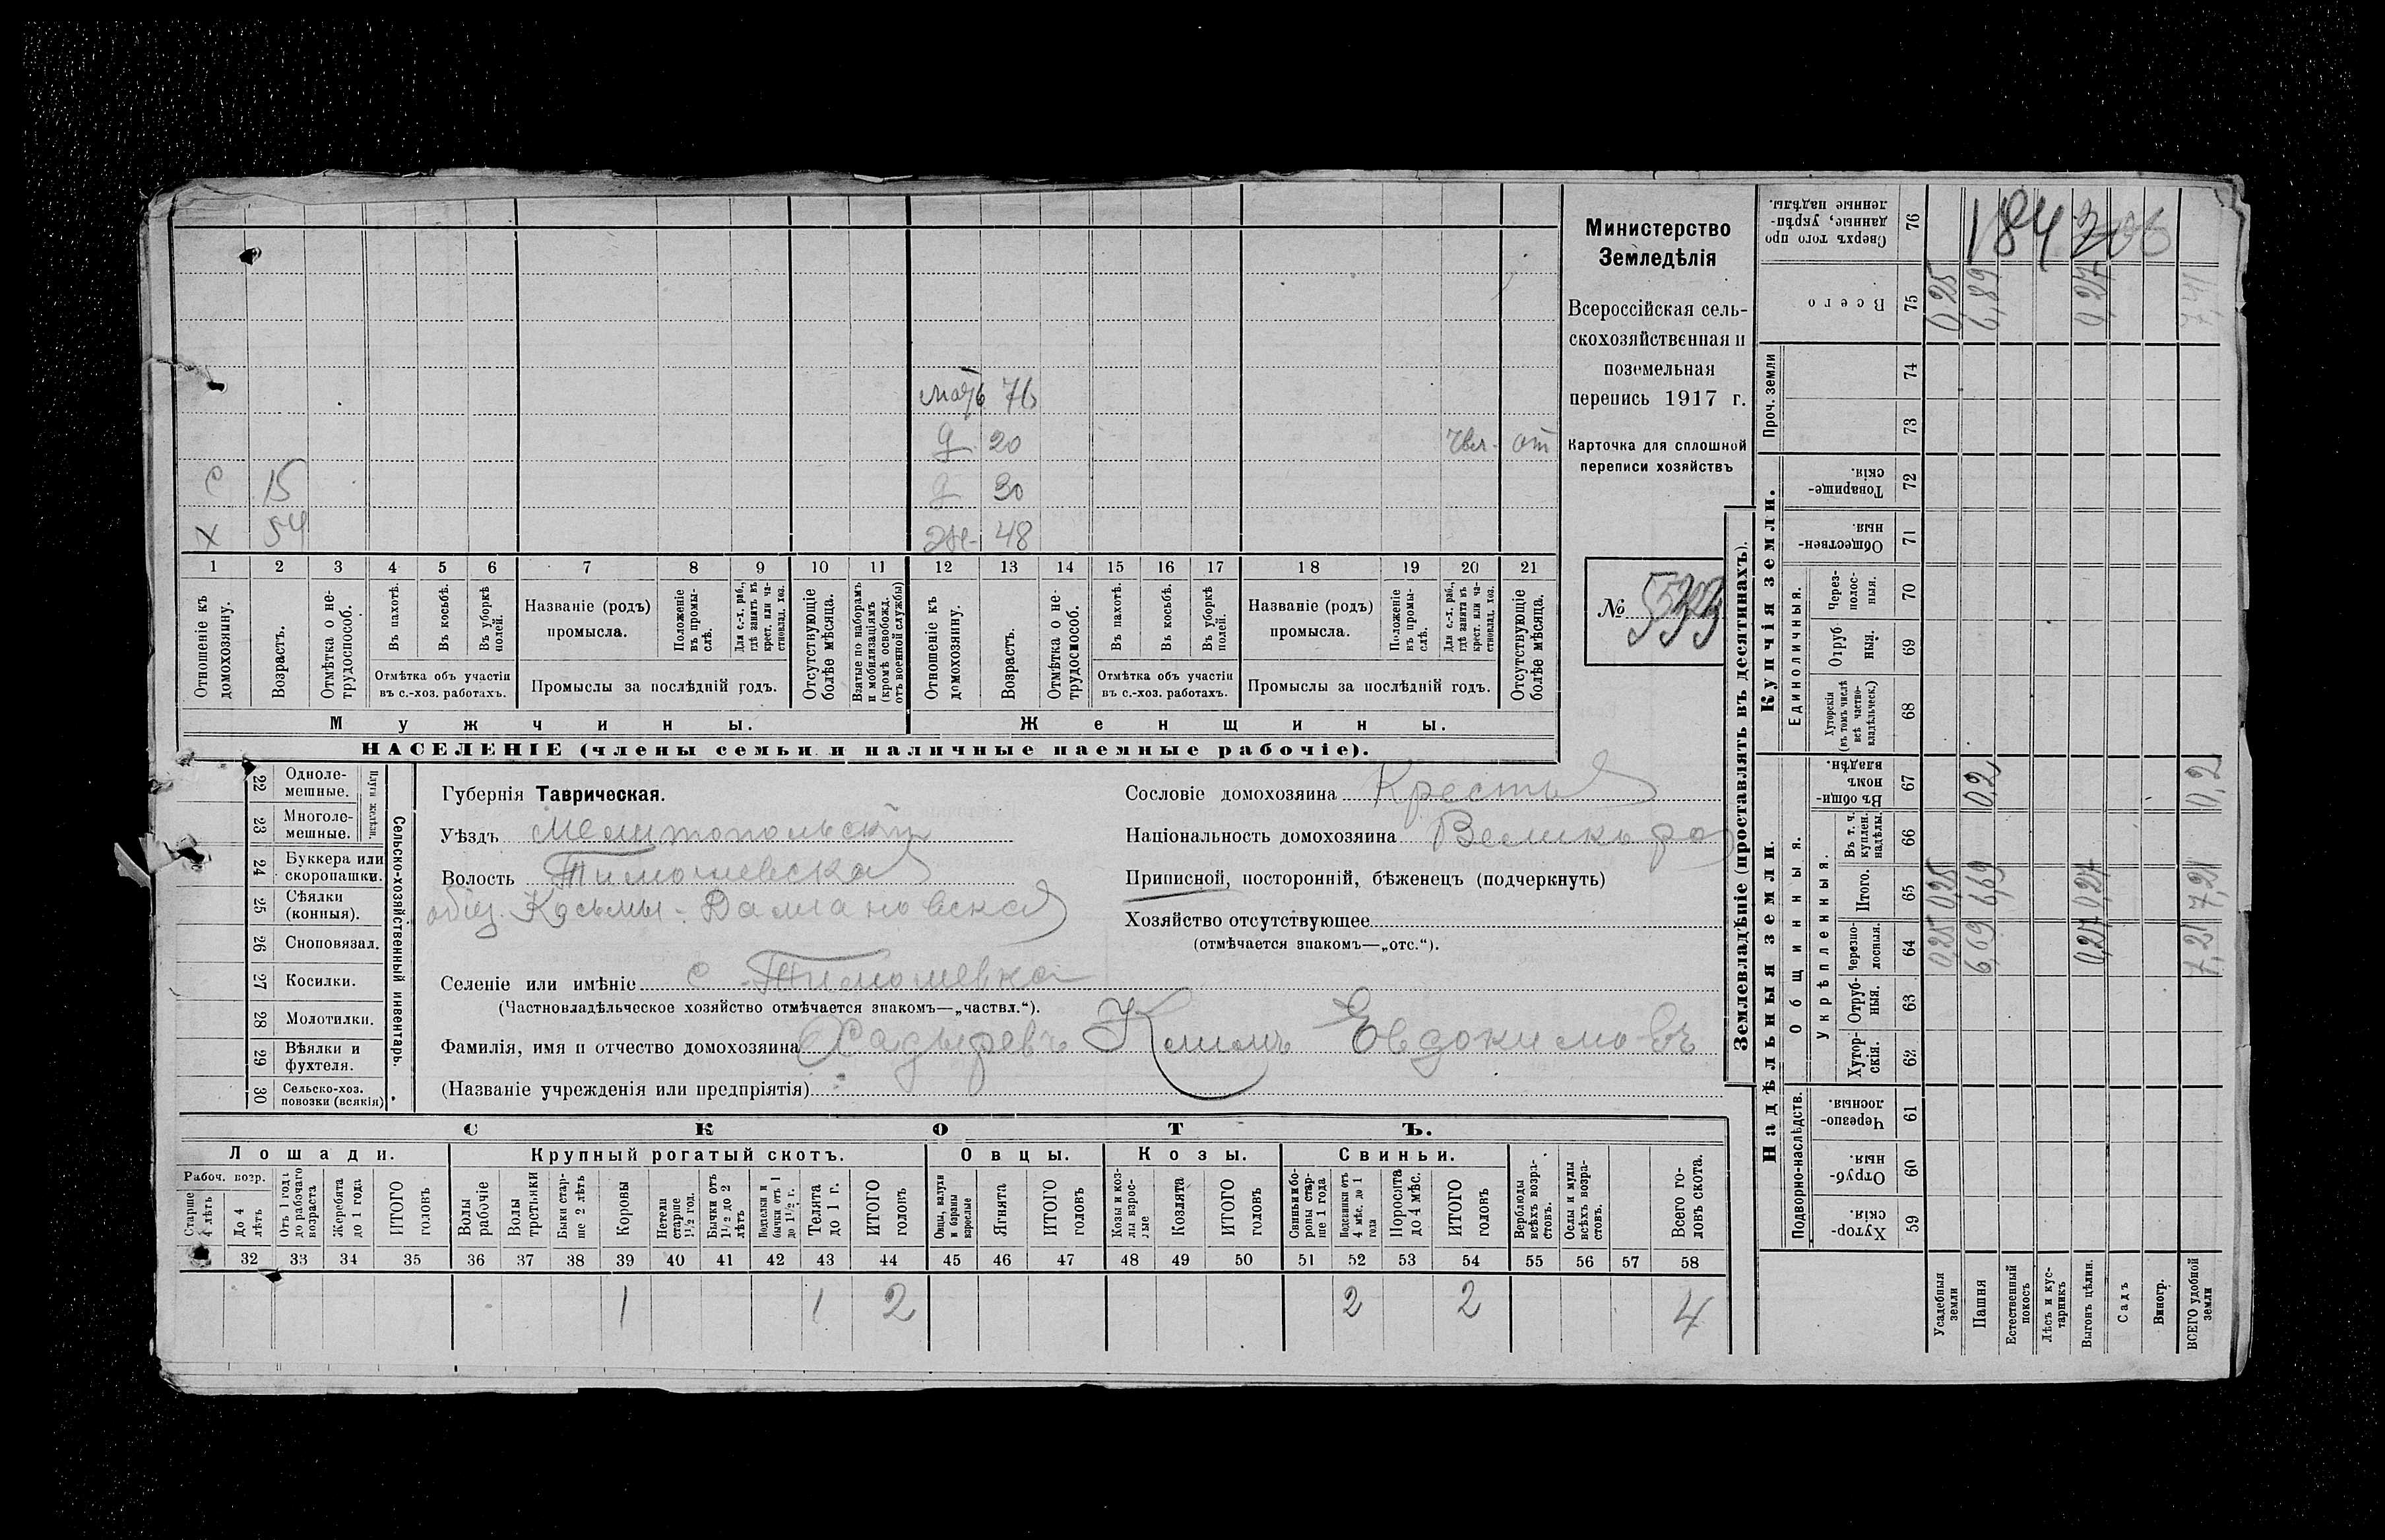 Министерство
Земледѣлія
Всероссійская сель-
скохозяйственная и
поземельная
перепись 1917 г.
Карточка для сплошной
переписи хозяйствъ
№
мать 76
д 20 отп
с 15 д 30
х 54 же- 48
1 2 3 4 5 6 7 8 9 10 11 12 13 14 15 16 17 18 19 20 21
Отношеніе къ домохозяину.
Возрастъ.
Отмѣтка о не-трудоспособ.
Въ пахотѣ.
Въ косьбѣ.
Въ уборкѣ полей.
Отмѣтка объ участіи въ с.-хоз. работахъ.
Названіе (родъ) промысла.
Положеніе въ промы-слѣ.
Для с.-х. раб., гдѣ занятъ въ крест. или ча-стновлад. хоз.
Промыслы за послѣдній годъ.
Отсутствующіе болѣе мѣсяца.
Взятые по наборамъ и мобилизаціямъ (кромѣ освобожд. отъ военной службы)
Отношеніе къ домохозяину.
Возрастъ.
Отмѣтка о не-трудоспособ.
Въ пахотѣ.
Въ косьбѣ.
Въ уборкѣ полей.
Отмѣтка объ участіи въ с.-хоз. работахъ.
Названіе (родъ) промысла.
Положеніе въ промы-слѣ.
Для с.-х. раб., гдѣ занята въ крест. или ча-стновлад. хоз.
Промыслы за послѣдній годъ.
Отсутствующіе болѣе мѣсяца.
Мужчины. Женщины.
НАСЕЛЕНІЕ (члены семьи и наличные наемные рабочіе).
Сельско-хозяйственный инвентарь.
Плуги желѣзн.
22 Одноле-мешные.
23 Многоле-мешные.
24 Буккера или скоропашки.
25 Сѣялки (конныя).
26 Сноповязал.
27 Косилки.
28 Молотилки.
29 Вѣялки и фухтеля.
30 Сельско-хоз. повозки (всякія)
Губернія Таврическая.
Уѣздъ Мелитопольскій
Волость Тимошевская
общ. Косьмы-Даміановская
Селеніе или имѣніе с. Тимошевка
(Частновладѣльческое хозяйство отмѣчается знакомъ—„частвл.“).
Фамилія, имя и отчество домохозяина Хадыревъ Климъ Евдокимовъ
(Названіе учрежденія или предпріятія)
Сословіе домохозяина Крестья
Національность домохозяина Великоро
Приписной, посторонній, бѣженецъ (подчеркнуть)
Хозяйство отсутствующее
(отмѣчается знакомъ—„отс.“).
СКОТЪ.
Лошади. Крупный рогатый скотъ. Овцы. Козы. Свиньи.
Рабоч. возр.
Старше 4 лѣтъ
До 4 лѣтъ
Отъ 1 года до рабочаго возраста
Жеребята до 1 года
ИТОГО головъ
Волы рабочіе
Волы третьяки
Быки стар-ше 2 лѣтъ
Коровы
Нетели старше 1½ год.
Бычки отъ 1½ до 2 лѣтъ
Подтелки и бычки отъ 1 до 1½ г.
Телята до 1 г.
ИТОГО головъ
Овцы, валухи и бараны взрослые
Ягнята
ИТОГО головъ
Козы и коз-лы взрос-лые
Козлята
ИТОГО головъ
Свиньи и бо-ровы стар-ше 1 года
Подсвинки отъ 4 мѣс. до 1 года
Поросята до 4 мѣс.
ИТОГО головъ
Верблюды всѣхъ возра-стовъ.
Ослы и мулы всѣхъ возра-стовъ.
Всего го-ловъ скота.
32 33 34 35 36 37 38 39 40 41 42 43 44 45 46 47 48 49 50 51 52 53 54 55 56 57 58
1 1 2 2 2 4
Землевладѣніе (проставлять въ десятинахъ).
Надѣльныя земли. Купчія земли. Проч. земли
Подворно-наслѣдств.
Общинныя.
Укрѣпленныя.
Единоличныя.
59 Хутор-скія.
60 Отруб-ныя.
61 Черезпо-лосныя.
62 Хутор-скія.
63 Отруб-ныя.
64 Черезпо-лосныя.
65 Итого.
66 Въ т. ч. куплен. надѣлы.
67 Въ общи-номъ владѣн.
68 Хуторскія (въ томъ числѣ всѣ частно-владѣльческ.)
69 Отруб-ныя.
70 Через-полос-ныя.
71 Обществен-ныя.
72 Товарище-скія.
73
74
75 Всего
76 Сверхъ того про-данные, укрѣп-ленные надѣлы.
Усадебныя земли 0,25 0,25 0,25
Пашня 6,69 6,69 0,2 6,89
Естественный покосъ
Лѣсъ и кус-тарникъ
Выгонъ цѣлин. 0,27 0,27 0,27
Садъ
Виногр.
ВСЕГО удобной земли 7,21 7,21 0,2 7,41
184